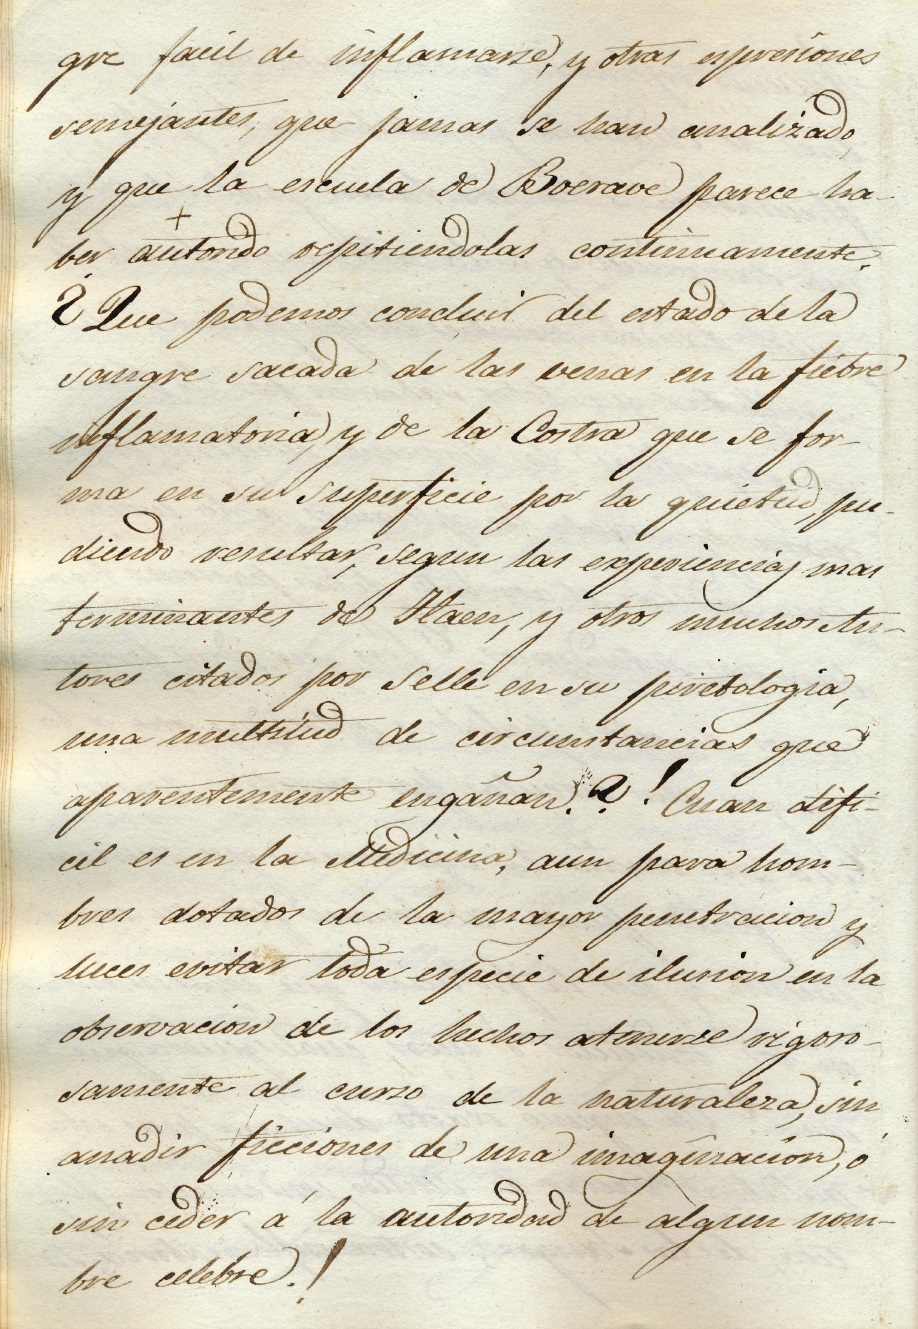 gre facil de inflamarse, y otras espresiones
semejantes, que jamas se han analizado,
y que la escuela de Boerave parece ha-
ber autorido repitiendolas continuamente.
¿Que podemos concluir del estado de la
sangre sacada de las venas en la fiebre
inflamatoria, y de la Costra que se for-
ma en su superficie por la quietud, pu-
diendo resultar, segun las experiencias mas
terminantes de Haen, y otros muchos Au-
tores citados por Selle en su piretologia,
una multitud de circunstancias que
aparentemente engañan.? ! Cuan difi-
cil es en la Medicina, aun para hom-
bres dotados de la mayor penetracion y
luces evitar toda especie de ilusion en la
observacion de los hechos atenerse rigoro-
samente al curso de la naturaleza, sin
anadir ficciones de una imaginacion, ó
sin ceder á la autoridad de algun nom-
bre celebre.!